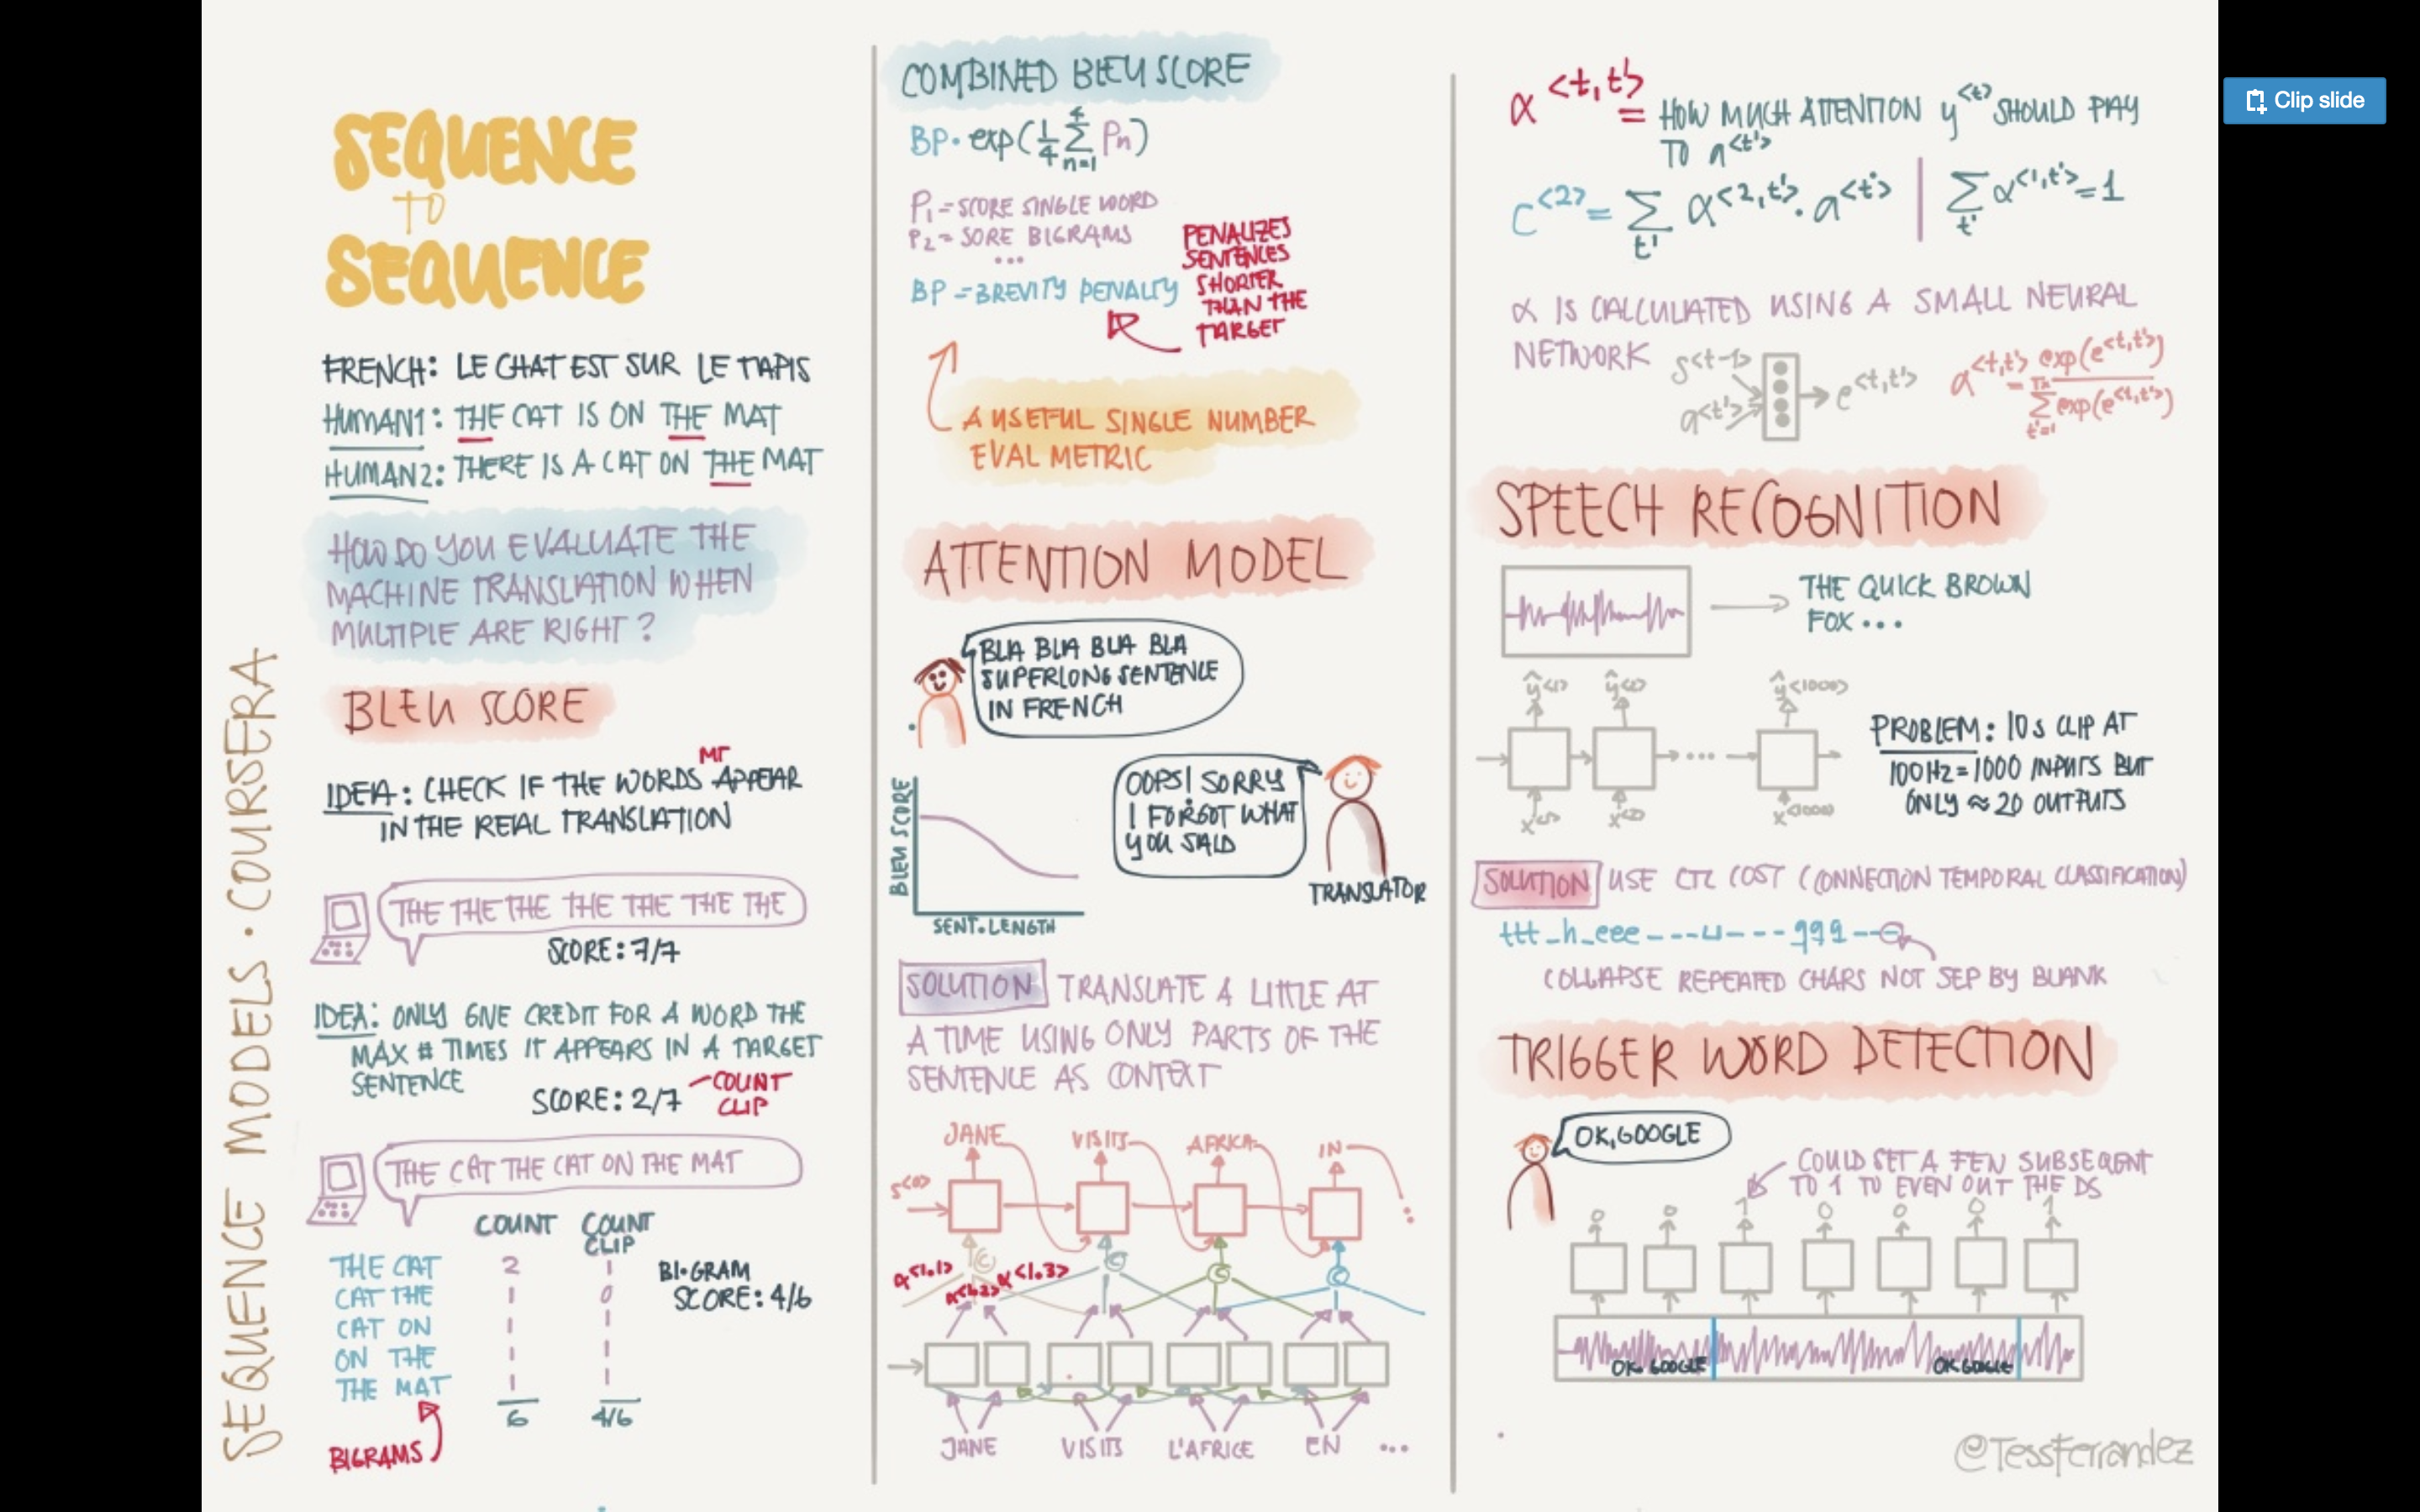 SEQUENCE MODELS · COURSERA
SEQUENCE
TO
SEQUENCE
FRENCH: LE CHAT EST SUR LE TAPIS
HUMAN1: THE CAT IS ON THE MAT
HUMAN2: THERE IS A CAT ON THE MAT
HOW DO YOU EVALUATE THE
MACHINE TRANSLATION WHEN
MULTIPLE ARE RIGHT?
BLEU SCORE
MT
IDEA: CHECK IF THE WORDS APPEAR
IN THE REAL TRANSLATION
THE THE THE THE THE THE THE
SCORE: 7/7
IDEA: ONLY GIVE CREDIT FOR A WORD THE
MAX # TIMES IT APPEARS IN A TARGET
SENTENCE
SCORE: 2/7
COUNT
CLIP
THE CAT THE CAT ON THE MAT
COUNT COUNT CLIP
THE CAT 2 1
CAT THE 1 0
CAT ON 1 1
ON THE 1 1
THE MAT 1 1
6 4/6
BI-GRAM
SCORE: 4/6
BIGRAMS
COMBINED BLEU SCORE
BP · exp(1/4 Σ n=1 4 Pn)
P1 = SCORE SINGLE WORD
P2 = SORE BIGRAMS
...
BP = BREVITY PENALTY
PENALIZES
SENTENCES
SHORTER
THAN THE
TARGET
A USEFUL SINGLE NUMBER
EVAL METRIC
ATTENTION MODEL
BLA BLA BLA BLA
SUPERLONG SENTENCE
IN FRENCH
OOPS! SORRY
I FORGOT WHAT
YOU SAID
TRANSLATOR
BLEU SCORE
SENT. LENGTH
SOLUTION TRANSLATE A LITTLE AT
A TIME USING ONLY PARTS OF THE
SENTENCE AS CONTEXT
JANE VISITS AFRICA IN
S<0>
C C C C
α<1,1> α<1,2> α<1,3>
JANE VISITS L'AFRICE EN ...
α<t,t'> = HOW MUCH ATTENTION y<t> SHOULD PAY
TO a<t'>
C<2> = Σ t' α<2,t'> · a<t'> | Σ t' α<1,t'> = 1
α IS CALCULATED USING A SMALL NEURAL
NETWORK
s<t-1>
a<t'>
e<t,t'>
α<t,t'> = exp(e<t,t'>) / Σ t'=1 Tx exp(e<t,t'>)
SPEECH RECOGNITION
THE QUICK BROWN
FOX ...
ŷ<1> ŷ<2> ŷ<1000>
...
x<1> x<2> x<1000>
PROBLEM: 10s CLIP AT
100Hz = 1000 INPUTS BUT
ONLY ≈ 20 OUTPUTS
SOLUTION USE CTC COST (CONNECTION TEMPORAL CLASSIFICATION)
ttt_h_eee---⊔---qqq--
COLLAPSE REPEATED CHARS NOT SEP BY BLANK
TRIGGER WORD DETECTION
OK, GOOGLE
COULD SET A FEW SUBSEQUENT
TO 1 TO EVEN OUT THE DS
0 0 1 0 0 0 1
OK GOOGLE OK GOOGLE
@TessFerrandez
Clip slide